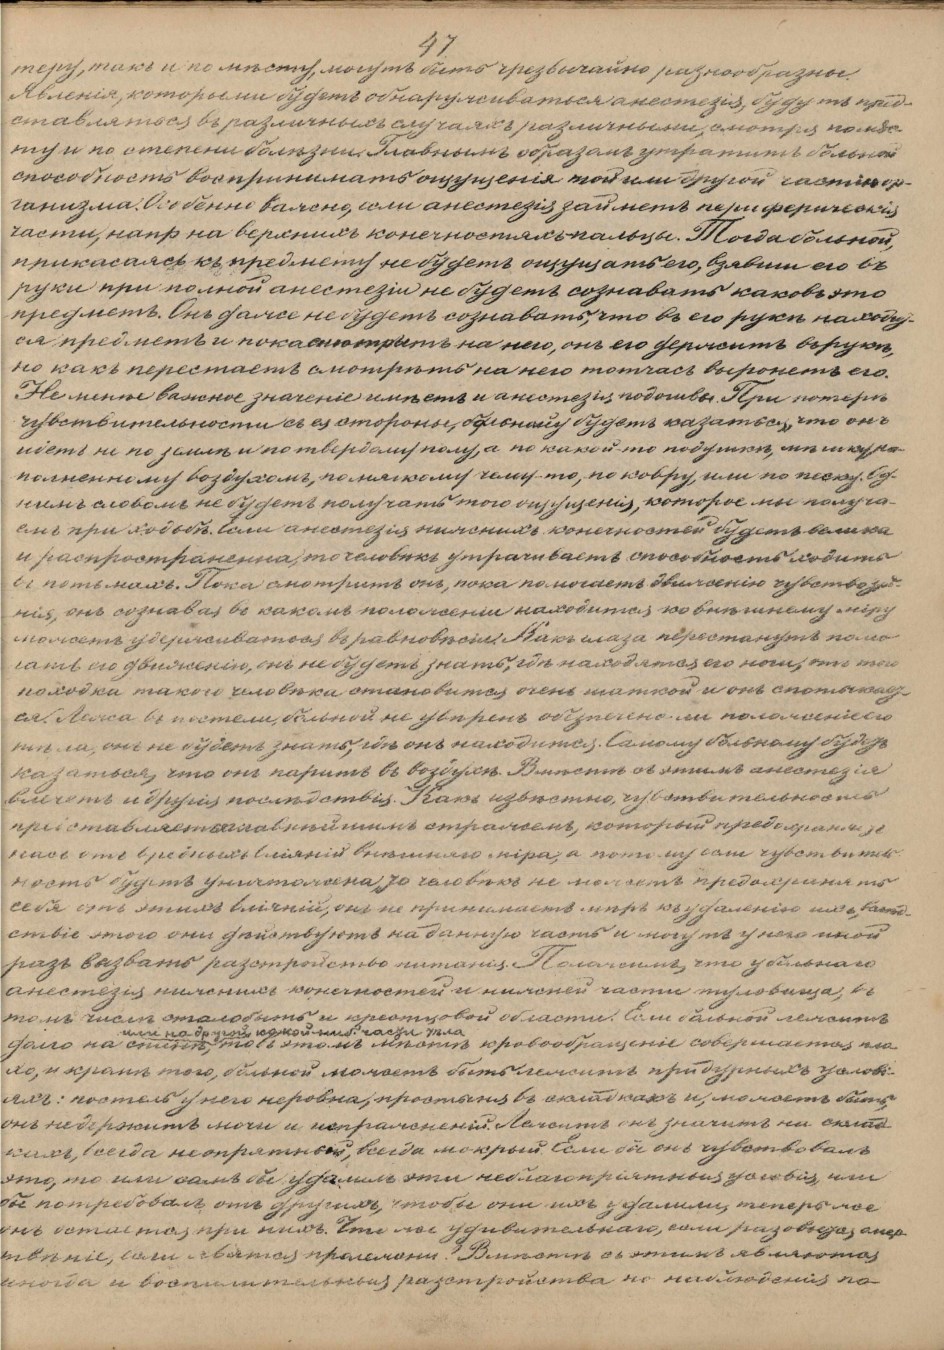 47
теру, такъ и по мѣсту, могутъ быть чрезвычайно разнообразны.
Явленія, которыми будетъ обнаруживаться анестезія, будутъ пред-
ставляться въ различныхъ случаяхъ различными, смотря по мѣс-
ту и по степени болѣзни. Главнымъ образомъ утратитъ больной
способность воспринимать ощущенія той или другой части ор-
ганизма. Особенно важно, если анестезія займетъ периферическія
части, напр на верхнихъ конечностяхъ-пальцы. Тогда больной,
прикасаясь къ предмету не будетъ ощущать его, взявши его въ
руки при полной анестезіи не будетъ сознавать каковъ это
предметъ. Онъ даже не будетъ сознавать, что въ его рукѣ находит-
ся предметъ и пока смотритъ на него, онъ его держитъ въ рукѣ,
но какъ перестаетъ смотрѣть на него тотчасъ выронетъ его.
Не менѣе важное значеніе имѣетъ и анестезія подошвы. При потерѣ
чувствительности съ ея стороны, больному будетъ казаться, что онъ
идетъ не по землѣ и по твердому полу, а по какой-то подушкѣ, мѣшку, на-
полненному воздухомъ, по мягкому чему-то, по ковру, или по песку. Од-
нимъ словомъ не будетъ получать того ощущенія, которое мы получа-
емъ при ходьбѣ. Если анестезія нижнихъ конечностей будетъ велика
и распространенна, то человѣкъ утрачиваетъ способность ходить
въ потьмахъ. Пока смотритъ онъ, пока помогаетъ движенію чувство зрѣ-
нія, онъ сознавая въ какомъ положеніи находится ко внѣшнему міру
можетъ удерживаться въ равновѣсіи. Какъ глаза перестанутъ помо-
гать его движенію, онъ не будетъ знать, гдѣ находятся его ноги, отъ того
походка такого человѣка становится очень шаткой и онъ спотыкает-
ся. Лежа въ постели, больной не увѣренъ обезпечено-ли положеніе его
тѣла, онъ не будетъ знать, гдѣ онъ находится. Самому больному будетъ
казаться, что онъ паритъ въ воздухѣ. Вмѣстѣ съ этимъ анестезія
влечетъ и другія послѣдствія. Какъ извѣстно, чувствительность
представляется главнѣйшимъ стражемъ, который предохраняетъ
насъ отъ вредныхъ вліяній внѣшняго міра, а потому если чувствитель-
ность будетъ уничтожена, то человѣкъ не можетъ предохранять
себя отъ этихъ вліяній, онъ не принимаетъ мѣръ къ удаленію ихъ, вслѣд-
ствіе этого они дѣйствуютъ на данную часть и могутъ у него иной
разъ вызвать разстройство питанія. Положимъ, что у больнаго
анестезія нижнихъ конечностей и нижней части туловища, въ
томъ числѣ сталобыть и крестцовой области. Если больной лежитъ
или на другой какой либо части тѣла
долго на спинѣ, то въ этомъ мѣстѣ кровообращеніе совершается пло-
хо, и кромѣ того, больной можетъ быть лежитъ при дурныхъ услові-
яхъ: постель у него неровна, простыня въ складкахъ и, можетъ быть,
онъ не держитъ мочи и испражненій. Лежитъ онъ значитъ на склад-
кахъ, всегда неопрятный, всегда мокрый. Если бы онъ чувствовалъ
это, то или самъ бы удалилъ эти неблагопріятныя условія, или
бы потребовалъ отъ другихъ, чтобы они ихъ удалили, теперь же
онъ остается при нихъ. Что же удивительнаго, если разовьется омер-
твѣніе, если явятся пролежни? Вмѣстѣ съ этимъ являются
иногда и воспалительныя разстройства но наблюденія по-